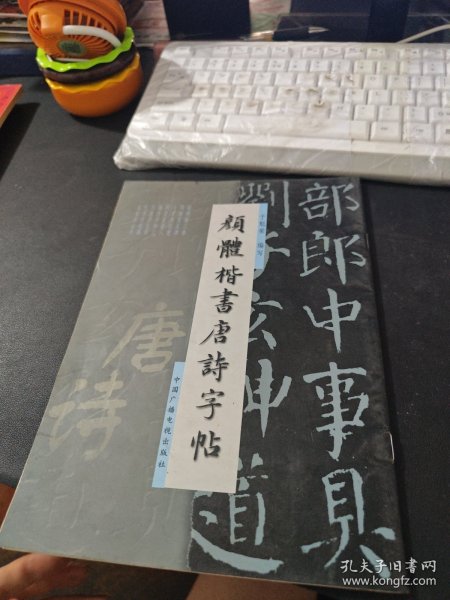 部郎中事具
劉子玄神道
顔體楷書唐詩字帖
编写
中国广播电视出版社
唐
诗
孔夫子旧书网
www.kongfz.com